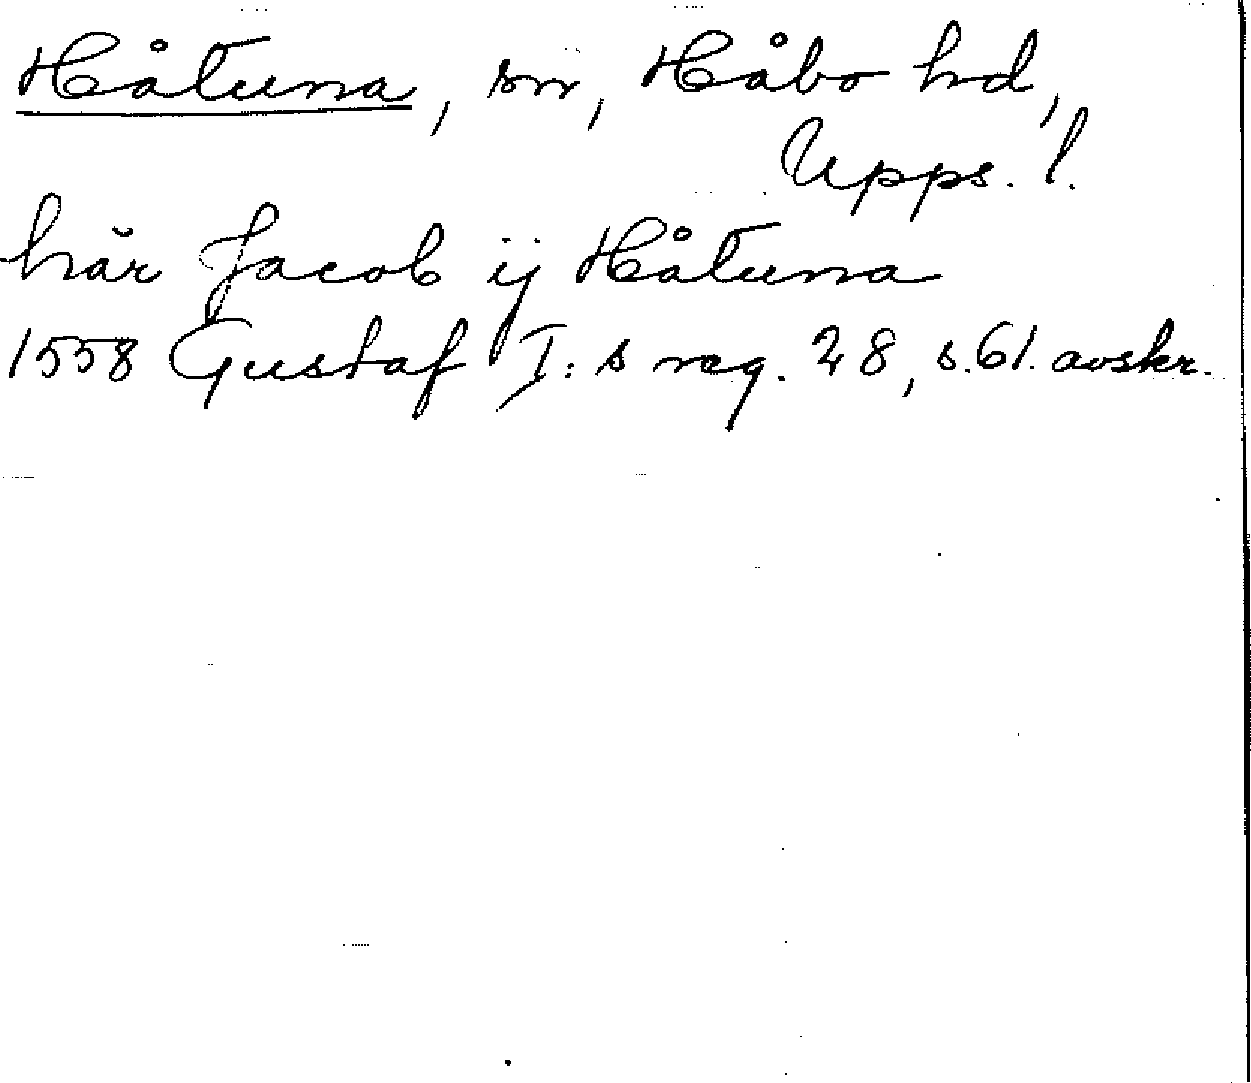 Håtuna, sn, Håbo hd,
Upps. l.
här Jacob ij Håtuna
1558 Gustaf I:s reg. 28, s. 61. avskr.